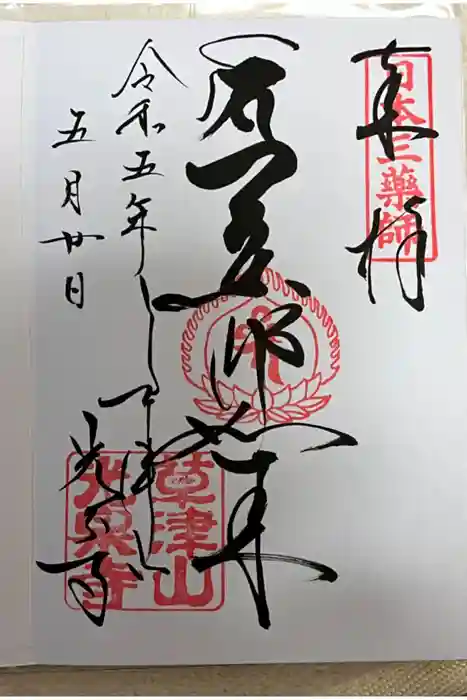 奉拝
日本三薬師
薬師如来
草津山
光泉寺
令和五年
五月廿日
草津山
光泉寺